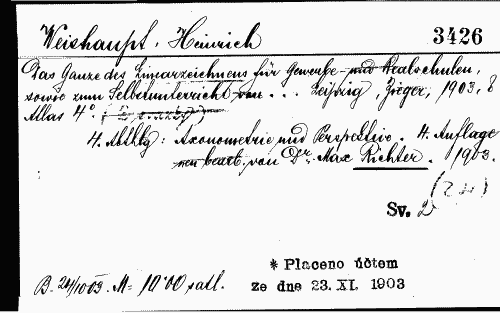 Weishaupt, Heinrich 3426
Das Ganze des Linearzeichnens für Gewerbe- und Realschulen,
sowie zum Selbstunterricht von ... Leipzig, Zieger, 1903, 8
Atlas 4°.
4. Abthlg: Axonometrie und Perspektive. 4. Auflage
neu bearb. von Dr. Max Richter. 1903.
Sv. 2
* Placeno účtem
B. 24/10 03. M= 10·00 satl. ze dne 23. XI. 1903